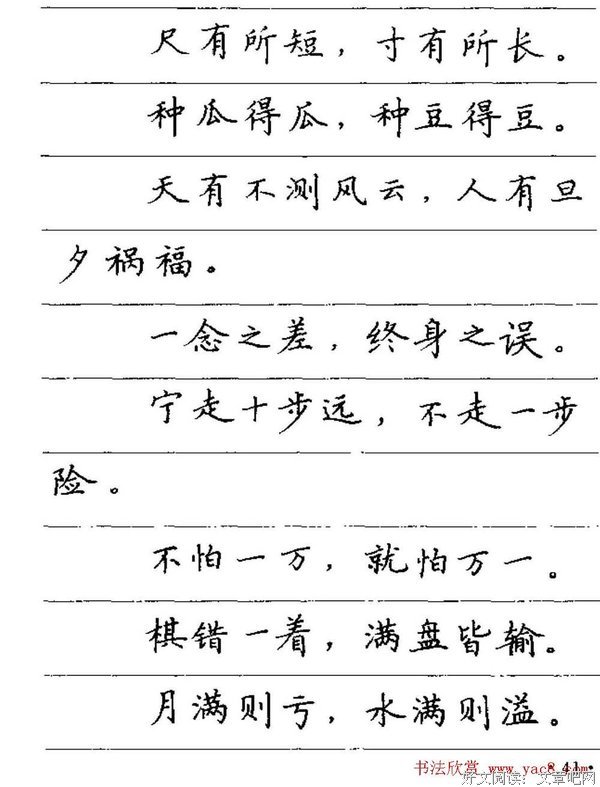 尺有所短，寸有所长。
种瓜得瓜，种豆得豆。
天有不测风云，人有旦
夕祸福。
一念之差，终身之误。
宁走十步远，不走一步
险。
不怕一万，就怕万一。
棋错一着，满盘皆输。
月满则亏，水满则溢。
书法欣赏 www.yac8.com
41·
好文阅读：文章吧网